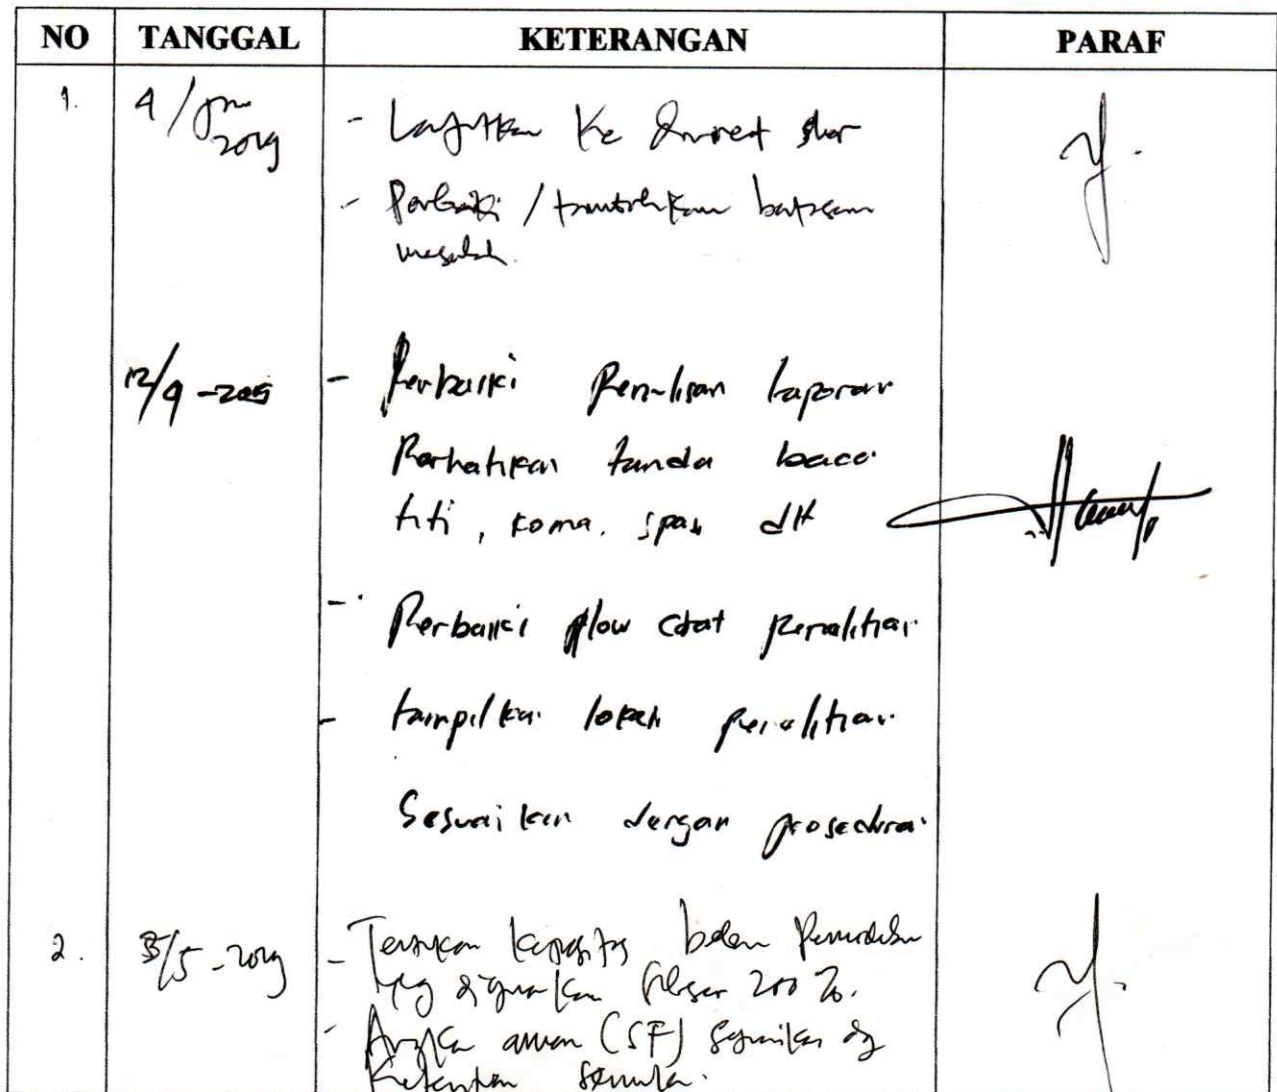 NO TANGGAL KETERANGAN PARAF
1. 4/Jun 2019
- Lanjutkan Ke
- Perbaiki / batasan
masalah.
12/9 -2019 - Perbaiki Penulisan laporan
Perhatikan tanda baca
titi, koma, spasi dll
- Perbaiki flow chat penelitian
- tampilkan lokasi penelitian
Sesuaikan dengan prosedural
2. /5-2019 - Tentukan kapasitas beban
yg digunakan sebesar 200 %.
- Angka aman (SF) sesuaikan dg
Ketentuan semula.